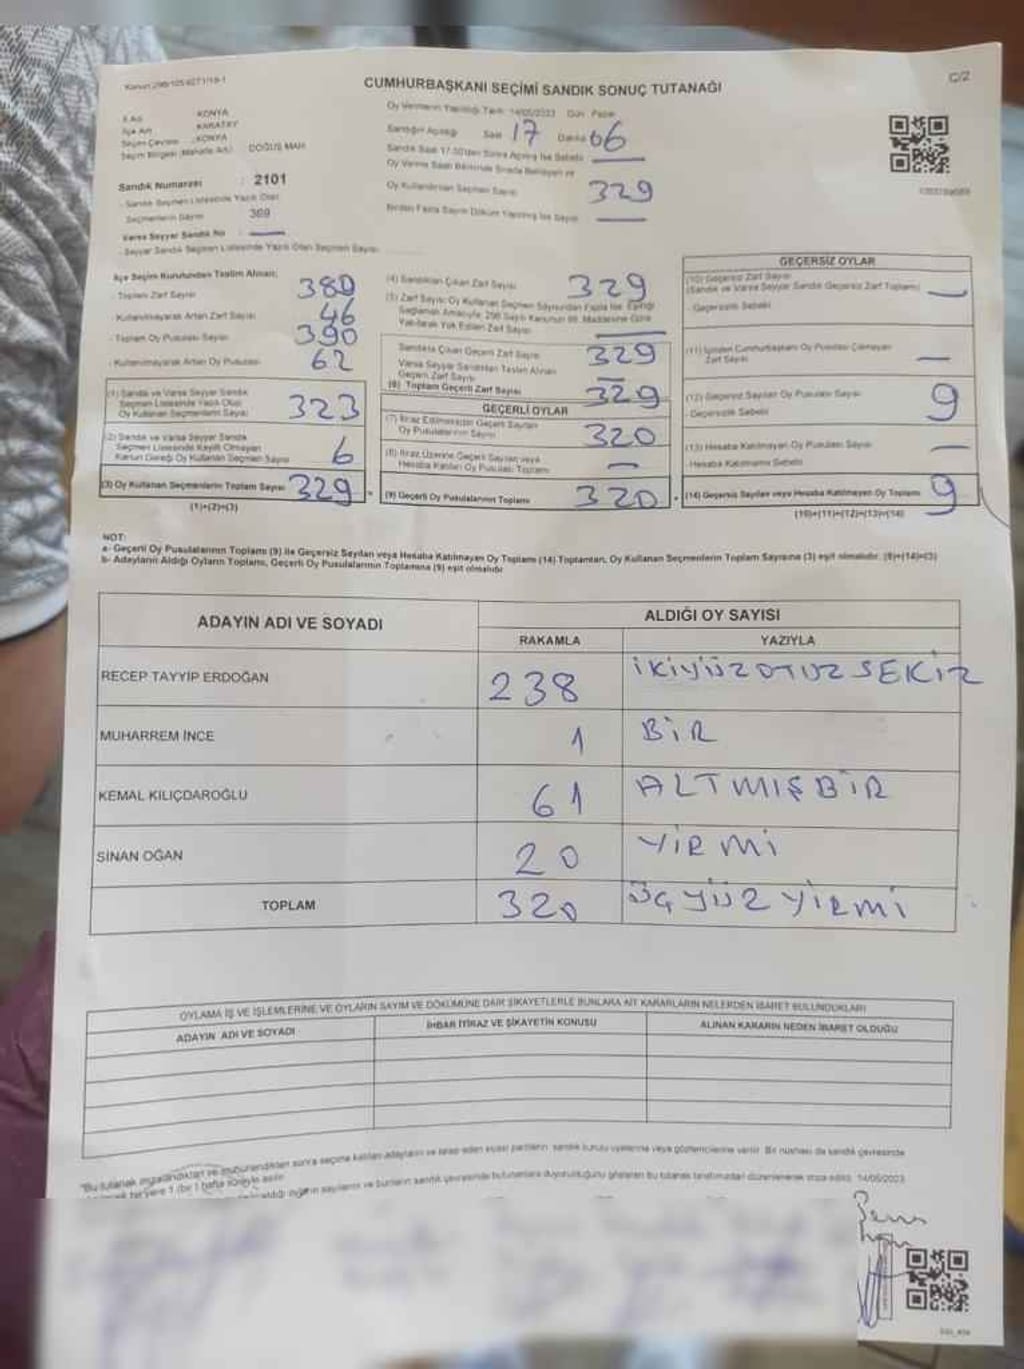 Kanun 298/105 6271/19-1
CUMHURBAŞKANI SEÇİMİ SANDIK SONUÇ TUTANAĞI
C/2
İl Adı KONYA
İlçe Adı KARATAY
Seçim Çevresi KONYA
Seçim Bölgesi (Mahalle Adı) DOĞUŞ MAH.
Sandık Numarası : 2101
- Sandık Seçmen Listesinde Yazılı Olan
Seçmenlerin Sayısı 369
Varsa Seyyar Sandık No :
- Seyyar Sandık Seçmen Listesinde Yazılı Olan Seçmen Sayısı
Oy Vermenin Yapıldığı Tarih 14/05/2023 Gün Pazar
Sandığın Açıldığı Saat 17 Dakika 06
Sandık Saat 17.00'den Sonra Açılmış İse Sebebi
Oy Kullandırılan Seçmen Sayısı 329
Birden Fazla Sayım Döküm Yapılmış İse Sayısı
İlçe Seçim Kurulundan Teslim Alınan;
- Toplam Zarf Sayısı 380
- Kullanılmayarak Artan Zarf Sayısı 46
- Toplam Oy Pusulası Sayısı 390
- Kullanılmayarak Artan Oy Pusulası 62
(1) Sandık ve Varsa Seyyar Sandık
Seçmen Listesinde Yazılı Olup
Oy Kullanan Seçmenlerin Sayısı 323
(2) Sandık ve Varsa Seyyar Sandık
Seçmen Listesinde Kayıtlı Olmayan
Kanun Gereği Oy Kullanan Seçmen Sayısı 6
(3) Oy Kullanan Seçmenlerin Toplam Sayısı 329
(1)+(2)=(3)
(4) Sandıktan Çıkan Zarf Sayısı 329
(5) Zarf Sayısı Oy Kullanan Seçmen Sayısından Fazla İse, Eşitliği
Sağlamak Amacıyla, 298 Sayılı Kanunun 98. Maddesine Göre
Yakılarak Yok Edilen Zarf Sayısı
Sandıkta Çıkan Geçerli Zarf Sayısı 329
Varsa Seyyar Sandıktan Teslim Alınan
Geçerli Zarf Sayısı
(6) Toplam Geçerli Zarf Sayısı 329
GEÇERLİ OYLAR
(7) İtiraz Edilmeksizin Geçerli Sayılan
Oy Pusulalarının Sayısı 320
(8) İtiraz Üzerine Geçerli Sayılan veya
Hesaba Katılan Oy Pusulası Toplamı
(9) Geçerli Oy Pusulalarının Toplamı 320
GEÇERSİZ OYLAR
(10) Geçersiz Zarf Sayısı
(Sandık ve Varsa Seyyar Sandık Geçersiz Zarf Toplamı)
- Geçersizlik Sebebi
(11) İçinden Cumhurbaşkanı Oy Pusulası Çıkmayan
Zarf Sayısı
(12) Geçersiz Sayılan Oy Pusulası Sayısı 9
- Geçersizlik Sebebi
(13) Hesaba Katılmayan Oy Pusulası Sayısı
- Hesaba Katılmama Sebebi
(14) Geçersiz Sayılan veya Hesaba Katılmayan Oy Toplamı 9
(10)+(11)+(12)+(13)=(14)
NOT:
a- Geçerli Oy Pusulalarının Toplamı (9) ile Geçersiz Sayılan veya Hesaba Katılmayan Oy Toplamı (14) Toplamları, Oy Kullanan Seçmenlerin Toplam Sayısına (3) eşit olmalıdır. (9)+(14)=(3)
b- Adayların Aldığı Oyların Toplamı, Geçerli Oy Pusulalarının Toplamına (9) eşit olmalıdır.
ADAYIN ADI VE SOYADI ALDIĞI OY SAYISI
RAKAMLA YAZIYLA
RECEP TAYYİP ERDOĞAN 238 İKİYÜZOTUZSEKİZ
MUHARREM İNCE 1 BİR
KEMAL KILIÇDAROĞLU 61 ALTMIŞBİR
SİNAN OĞAN 20 YİRMİ
TOPLAM 320 ÜÇYÜZYİRMİ
OYLAMA İŞ VE İŞLEMLERİNE VE OYLARIN SAYIM VE DÖKÜMÜNE DAİR ŞİKAYETLERLE BUNLARA AİT KARARLARIN NELERDEN İBARET BULUNDUKLARI
ADAYIN ADI VE SOYADI İHBAR İTİRAZ VE ŞİKAYETİN KONUSU ALINAN KARARIN NEDEN İBARET OLDUĞU
"Bu tutanak imzalandıktan ve mühürlendikten sonra seçime katılan adayların ve talep eden siyasi partilerin sandık kurulu üyelerine veya gözlemcilerine verilir. Bir nüshası da sandık çevresinde